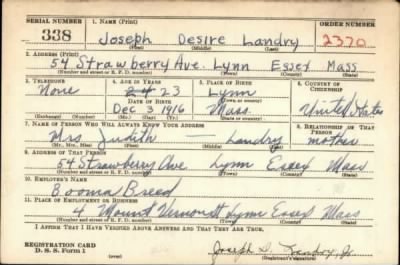 SERIAL NUMBER 1. NAME (Print) ORDER NUMBER
338 Joseph Desire Landry 2370
(First) (Middle) (Last)
2. ADDRESS (Print)
54 Strawberry Ave. Lynn Essex Mass
(Number and street or R. F. D. number) (Town) (County) (State)
3. TELEPHONE 4. AGE IN YEARS 5. PLACE OF BIRTH 6. COUNTRY OF CITIZENSHIP
None 24 23 Lynn
DATE OF BIRTH (Town or county)
Dec 3 1916 Mass. United States
(Exchange) (Number) (Mo.) (Day) (Yr.) (State or country)
7. NAME OF PERSON WHO WILL ALWAYS KNOW YOUR ADDRESS 8. RELATIONSHIP OF THAT PERSON
Mrs Judith — Landry mother
(Mr., Mrs., Miss) (First) (Middle) (Last)
9. ADDRESS OF THAT PERSON
54 Strawberry Ave Lynn Essex Mass
(Number and street or R. F. D. number) (Town) (County) (State)
10. EMPLOYER'S NAME
Booma Breed
11. PLACE OF EMPLOYMENT OR BUSINESS
4 Mount Vernon St Lynn Essex Mass
(Number and street or R. F. D. number) (Town) (County) (State)
I AFFIRM THAT I HAVE VERIFIED ABOVE ANSWERS AND THAT THEY ARE TRUE.
REGISTRATION CARD
D. S. S. Form 1 Joseph D. Landry Jr
(over) (Registrant's signature)